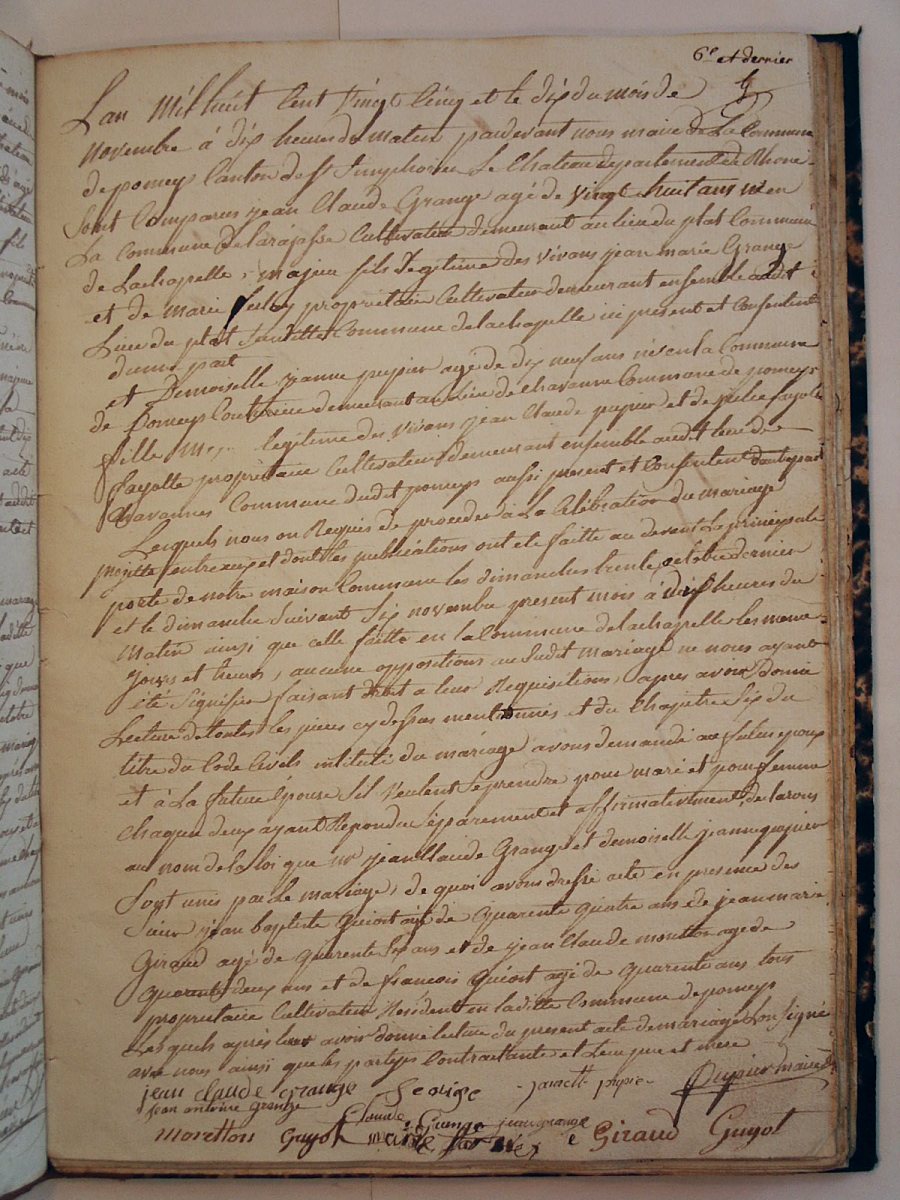 6e et dernier
L'an Mil huit Cent Vingt Cinq et le dix du mois de
Novembre à dix heures du matin pardevant nous maire de La Commune
de pomeys Canton de St Simphorien Le Chateau departement du Rhone
Sont Comparus jean Claude Grange agé de Vingt huit ans né en
La Commune De larajasse Cultivateur demeurant au lieu du plat Commune
de Lachapelle, majeur fils Legitime des Vivans jean marie Grange
et de marie proprietaire Cultivateur demeurant ensemble audit
Lieu du plat Commune de lachapelle ici present et Consentent
d'une part
et Demoiselle jeanne pupier agé de dix neuf ans née en la Commune
de Pomeys demeurant au Lieu de Chavanne Commune de pomeys
fille legitime des Vivans jean Claude pupier et de
fayolle proprietaire Cultivateur demeurant ensemble audit lieu de
Chavannes Commune dudit pomeys aussi present et Consentent d'autre part
Lesquels nous on Requis de proceder à La Célébration du mariage
projetté entre eux et dont les publications ont eté faitte au devant La principale
porte de notre maison Commune les dimanches trente octobre dernier
et le dimanche Suivant Six novembre present mois à dix heures du
Matin ainsi que celle faitte en la Commune de lachapelle les meme
jours et heures, aucune oppositions au Sudit mariage ne nous ayant
été Signifier faisant droit a leur Requisitions, apres avoir Donné
Lecture de toutes les pieces cy dessas mentionnés et du Chapitre Six du
titre du Code Civils intitulé du mariage avons demandé au futur epoux
et à La future Epouse Sil Veulent Se prendre pour mari et pour femme
Chaqun deux ayant Repondu Séparement et affirmativement, declarons
au nom de la Loi que Mr jean Claude Grange et demoiselle jeanne pupier
Sont unis par Le mariage, de quoi avons dressé acte en presence des
Sieur jean baptiste agé de quarente quatre ans de jean marie
Giraud agé de quarente Six ans et de jean Claude agé de
quarente deux ans et de francois agé de quarente ans tous
proprietaire Cultivateur Resident en ladite Commune de pomeys
Lesquels après leur avoir donné lecture du present acte de mariage L'on Signé
avec nous ainsi que les partyes Contractante et Leur pere et mere
jean claude grange pupier maire
jean antoine grange Claude Grange jean grange
Moretton Guyot Giraud Guyot